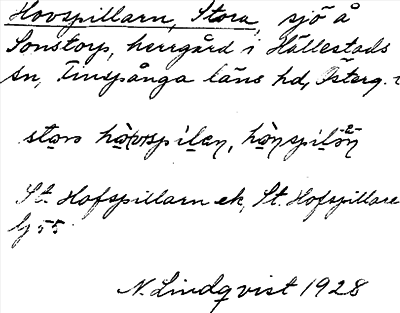 Hovspillarn, Stora, sjö å
Sonstorp, herrgård i Hällestads
sn, Finspånga läns hd, Österg.
stora
St. Hofspillarn ek, St. Hofspillare
55
N. Lindqvist 1928